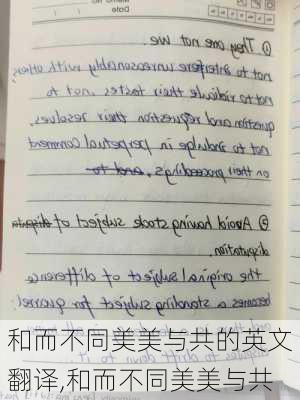 Memo No.
Date
① They are not we
not to interfere unreasonably with others,
not to ridicule their tastes, not to
question and their resolves,
not to indulge in perpetual comment
on their proceedings, and to
② Avoid having stock subject of disput
disputation.
the original subject of difference
becomes a standing subject for quarrel
to drift down to it
和而不同美美与共的英文
翻译,和而不同美美与共